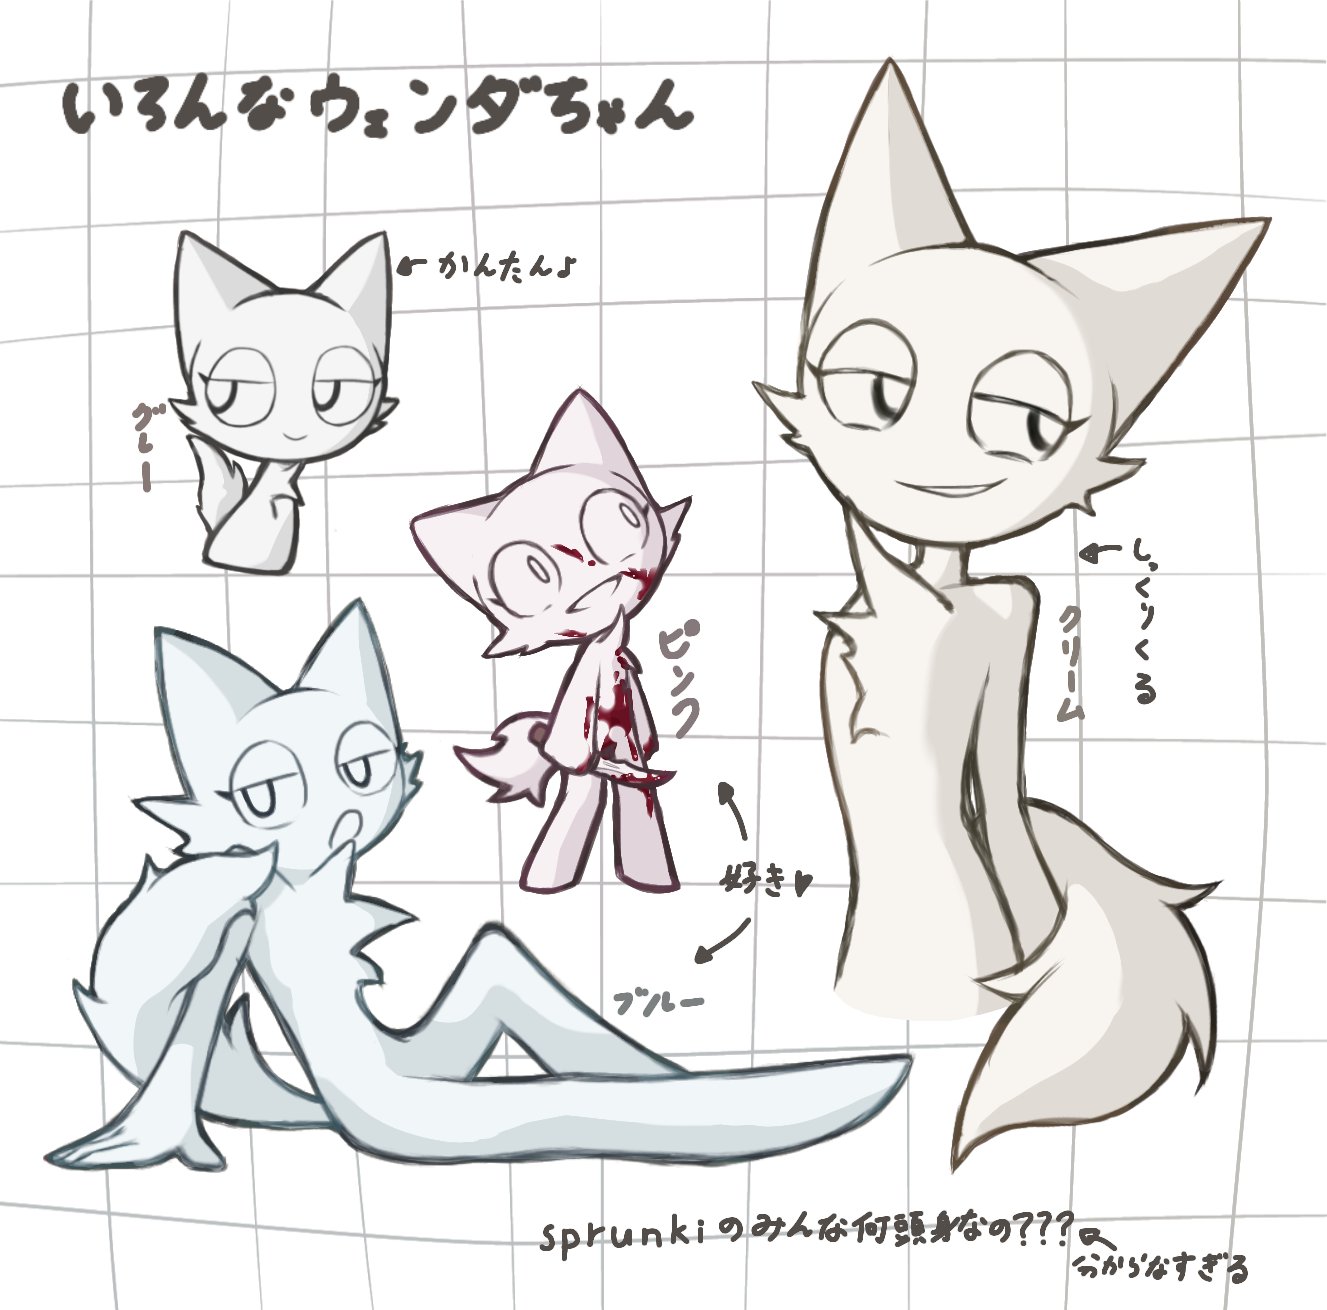 いろんなウェンダちゃん
←かんたんよ
グレー
ピンク
←しっくりくる
クリーム
好き♥
ブルー
sprunkiのみんな何頭身なの???←
分からなすぎる